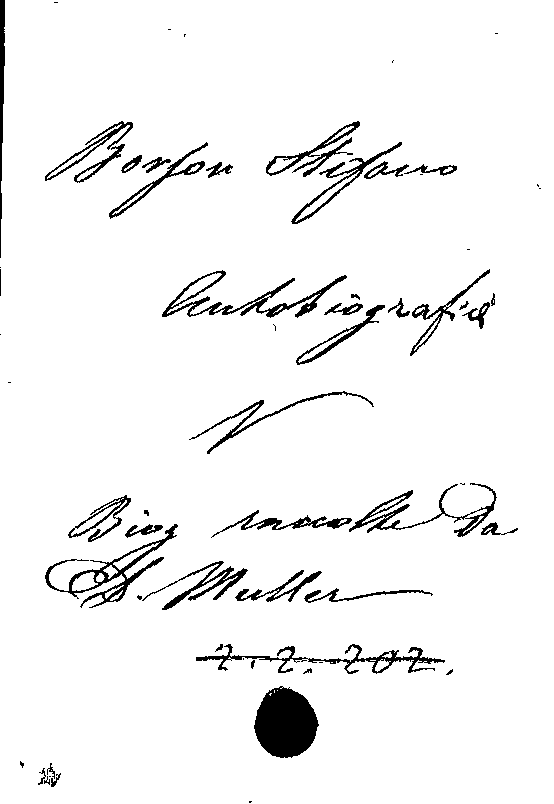 Borson Stefano
Autobiografia
V
Biog raccolte Da
A. Muller
2. 2. 202.